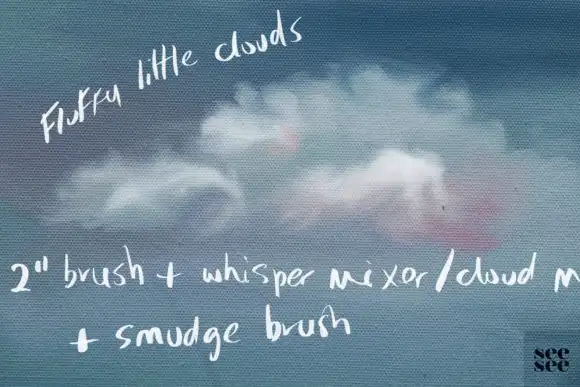 Fluffy little clouds
2" brush + whisper mixer/cloud m
+ smudge brush
see
see